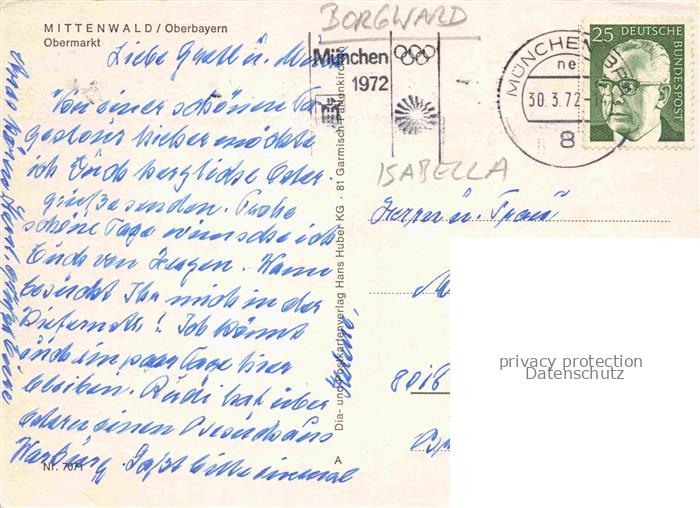 MITTENWALD / Oberbayern
Obermarkt
BORGWARD
München
1972
MÜNCHEN
30.3.72
8
25 DEUTSCHE BUNDESPOST
ISABELLA
Liebe Gretl u.
Von einer schönen Ta-
gestour hieher möchte
ich Euch herzliche Oster-
grüße senden. Frohe
schöne Tage wünsche ich
Euch von Herzen. Wann
besucht Ihr mich in der
! Ihr könnt
auch ein paar Tage hier
bleiben. Rudi hat über
Ostern einen Besuch aus
Warburg. Laßt bitte einmal
Herrn u. Frau
8018
privacy protection
Datenschutz
Dia- und Postkartenverlag Hans Huber KG · 81 Garmisch-Partenkirchen
Nr. 7071
A